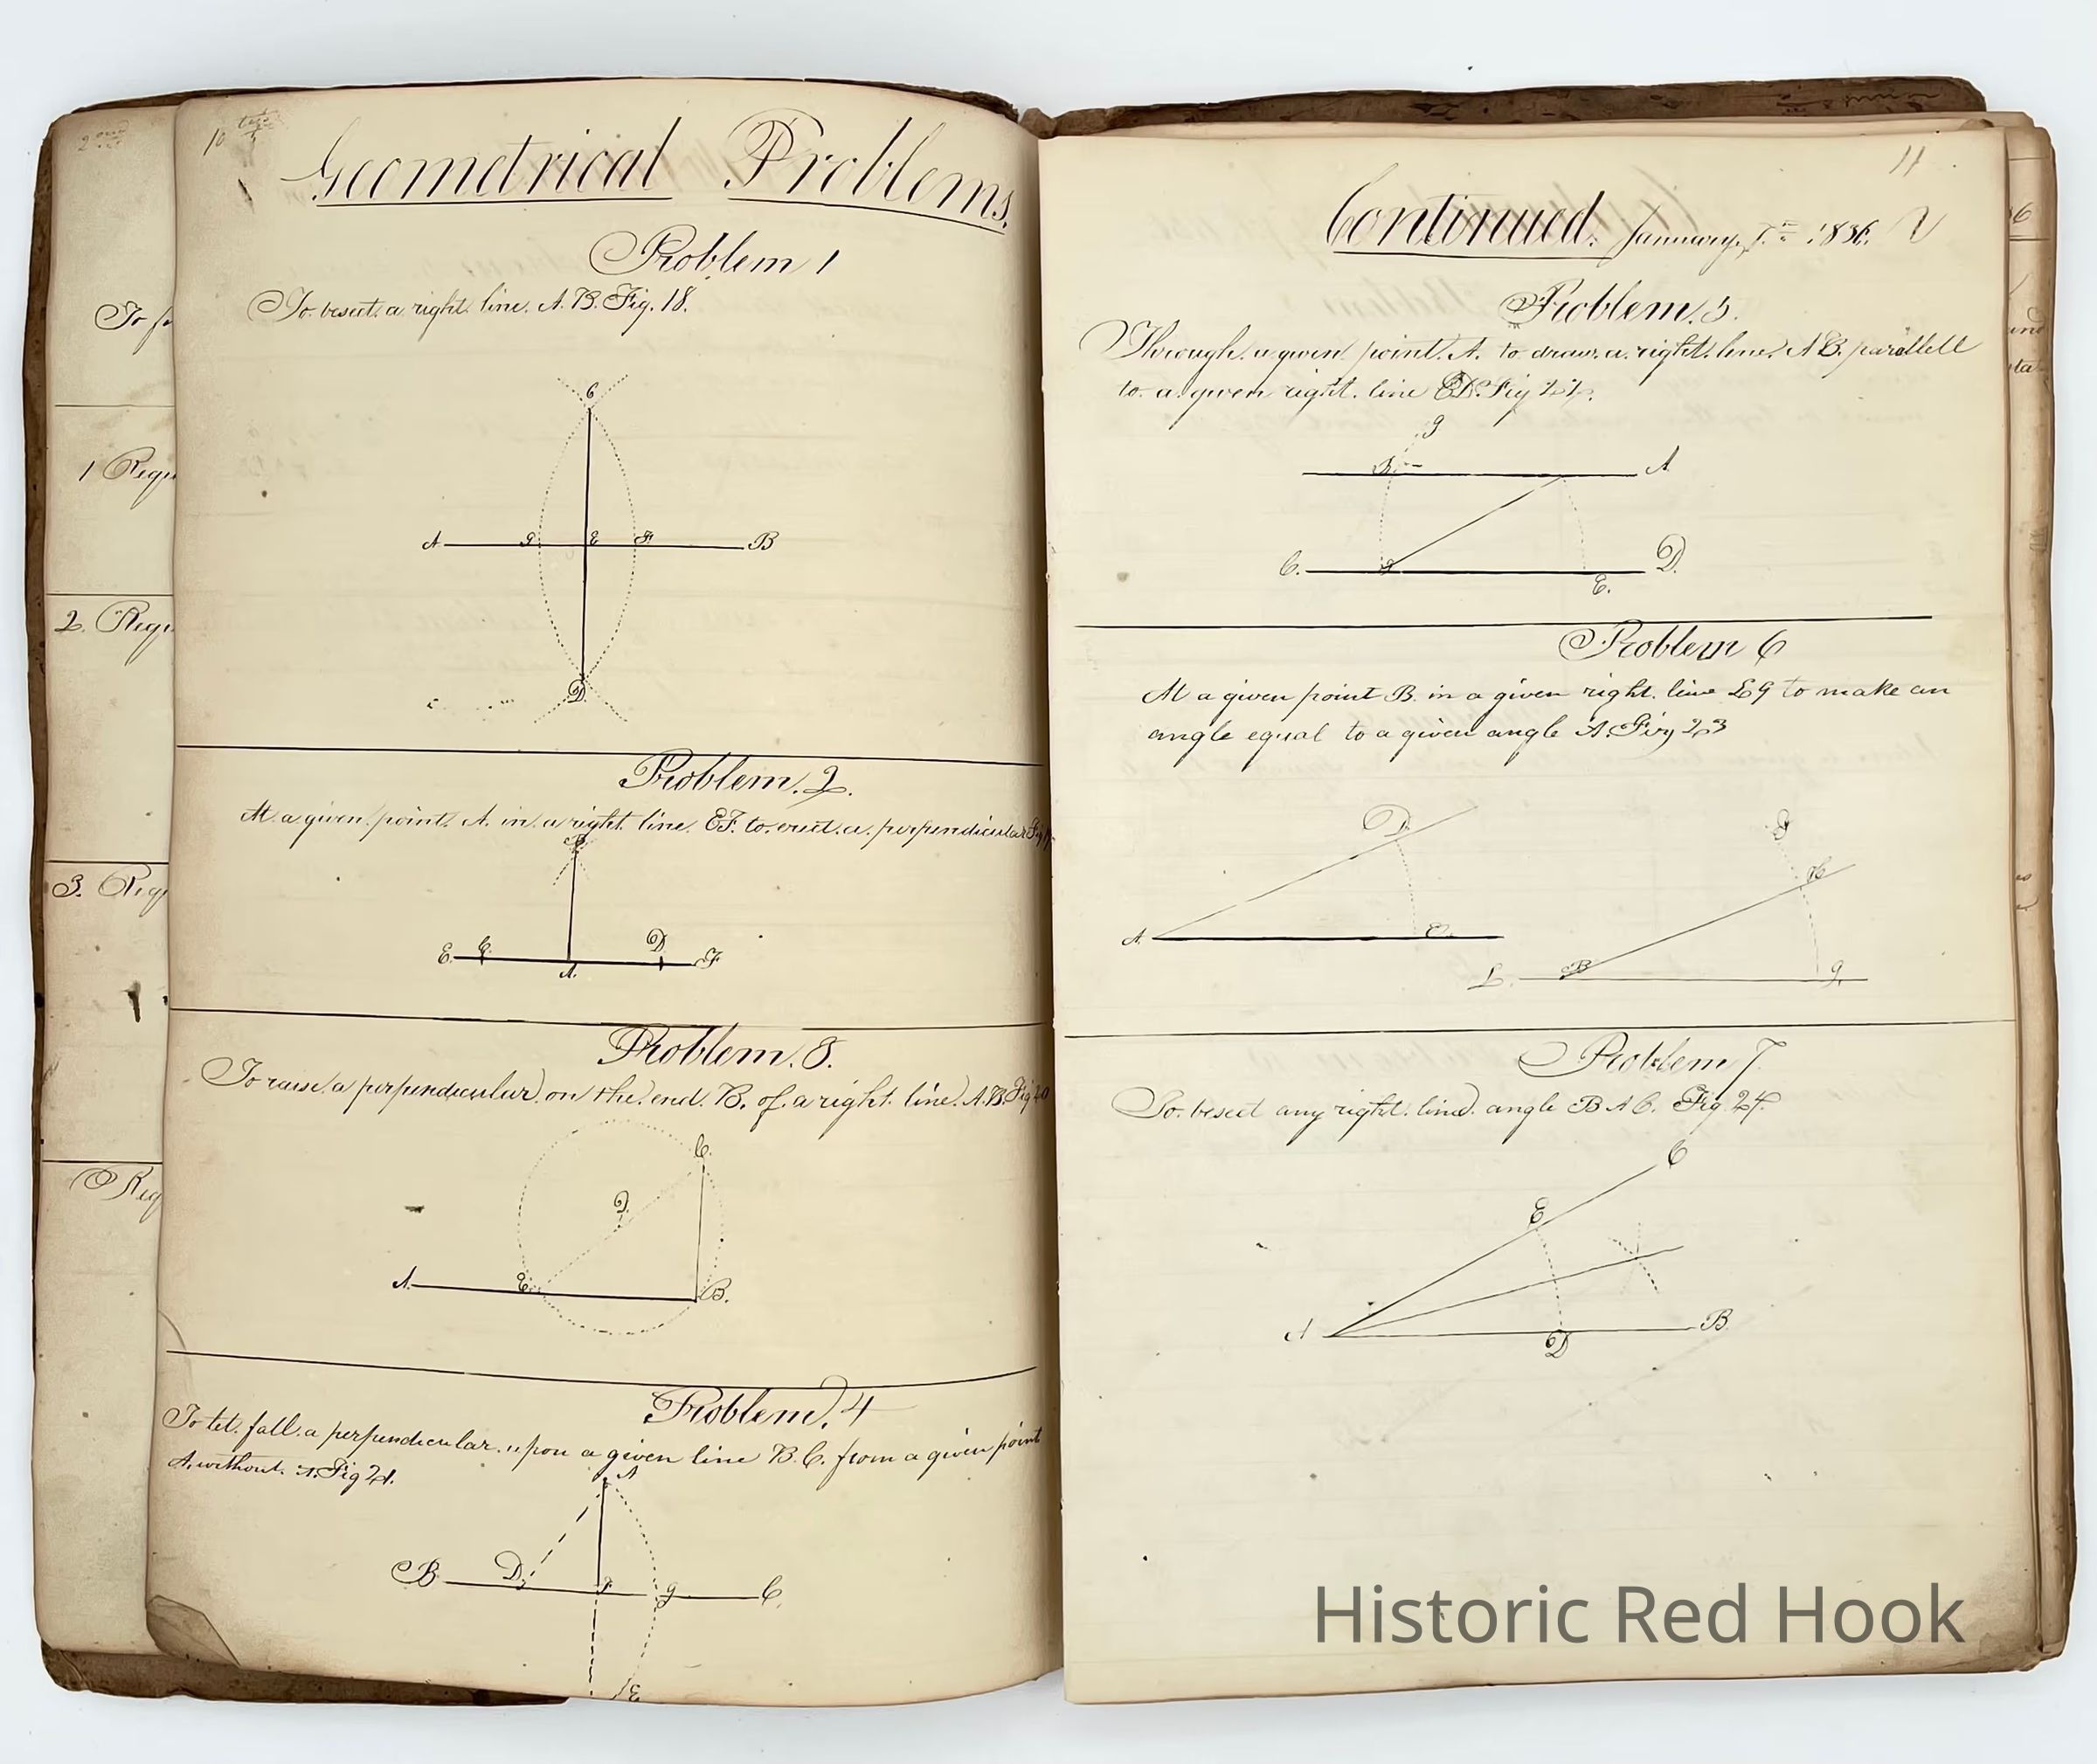 10
Geometrical Problems.
Problem 1
To besect a right line. A. B. Fig. 18.
C
A G E F B
D.
Problem. 2.
At a given point. A. in a right line. EF. to erect a. perpendicular Fig
B
E. C D. F
A.
Problem. 3.
To raise a perpendicular on the end. B. of a right line. A.B. Fig 20
C.
D.
A. E. B.
Problem. 4
To let fall a perpendicular upon a given line B.C. from a given point
A. without. Fig 21.
A
B D. F g C.
E
To
1 Requ
2. Requ
3. Requ
Req
11
Continued. January 1836.
Problem. 5.
Through. a given point. A. to draw. a. right. line. A B. parallell
to. a given right. line CD. Fig 22.
g
B. A
C. D.
E.
Problem 6
At a given point B. in a given right. line Lg to make an
angle equal to a given angle A. Fig 23
D
A. E.
L. B g.
Problem 7
To. besect any right. lined. angle B A C. Fig 24
C
E
A B
D
Historic Red Hook